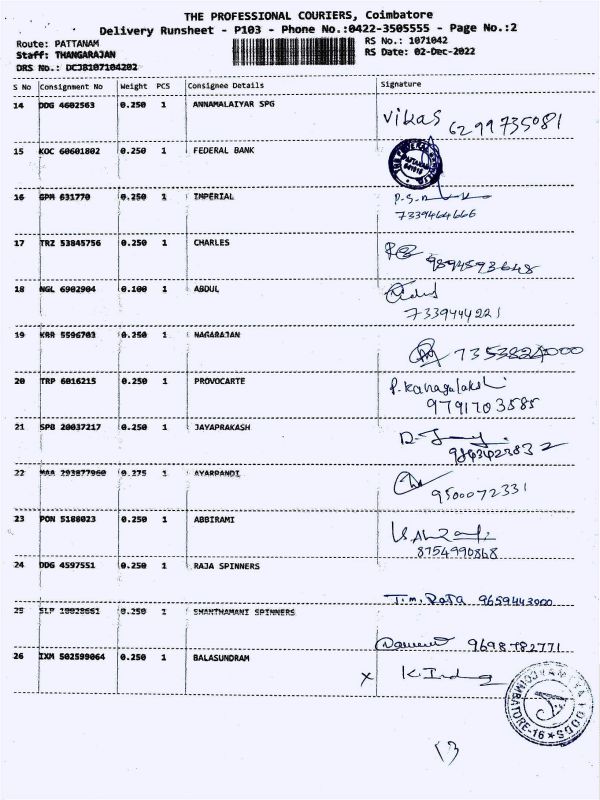 THE PROFESSIONAL COURIERS, Coimbatore
Delivery Runsheet - P103 - Phone No.:0422-3505555 - Page No.:2
Route: PATTANAM RS No.: 1071042
Staff: THANGARAJAN RS Date: 02-Dec-2022
DRS No.: DCJB107104202
S No Consignment No Weight PCS Consignee Details Signature
14 DDG 4602563 0.250 1 ANNAMALAIYAR SPG
Vikas 6299735081
15 KOC 60601802 0.250 1 FEDERAL BANK
16 GPM 631770 0.250 1 IMPERIAL
7339464666
17 TRZ 53845756 0.250 1 CHARLES
9894593648
18 NGL 6902904 0.100 1 ABDUL
7339444221
19 KRR 5596703 0.250 1 NAGARAJAN
7353824000
20 TRP 6016215 0.250 1 PROVOCARTE
P. Kanagalakshi
9791703585
21 SPB 20037217 0.250 1 JAYAPRAKASH
22 MAA 293877960 0.275 1 AYARPANDI
9500072331
23 PON 5188023 0.250 1 ABBIRAMI
8754990868
24 DDG 4597551 0.250 1 RAJA SPINNERS
T.M. Raja 9659443000
25 SLP 0.250 1 SHANTHAMANI SPINNERS
9698782771
26 IXM 502599064 0.250 1 BALASUNDRAM
x
COIMBATORE-16
13